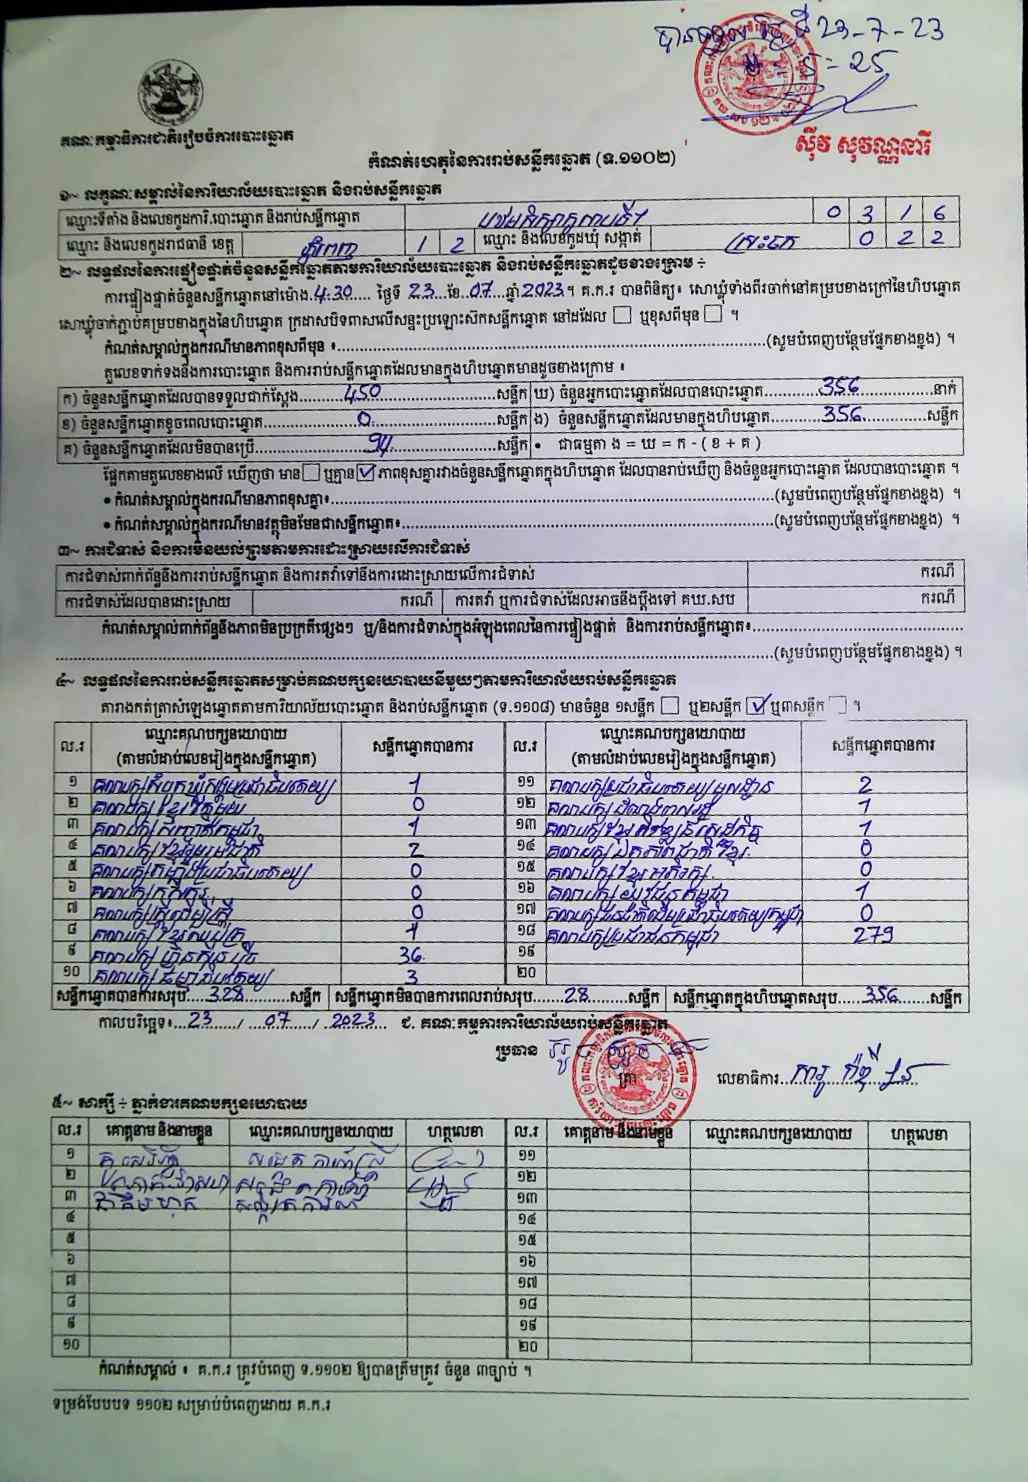 បានទទួល ថ្ងៃទី 23-7-23
ម៉ = 25
ស៊ីវ សុវណ្ណនារី
គណៈកម្មាធិការជាតិរៀបចំការបោះឆ្នោត
កំណត់ហេតុនៃការរាប់សន្លឹកឆ្នោត (ទ.១១០២)
១~ លក្ខណៈសម្គាល់នៃការិយាល័យបោះឆ្នោត និងរាប់សន្លឹកឆ្នោត
ឈ្មោះទីតាំង និងលេខកូដការិ.បោះឆ្នោត និងរាប់សន្លឹកឆ្នោត 0 3 1 6
ឈ្មោះ និងលេខកូដរាជធានី ខេត្ត ភ្នំពេញ 1 2 ឈ្មោះ និងលេខកូដឃុំ សង្កាត់ ស្រះចក 0 2 2
២~ លទ្ធផលនៃការផ្ទៀងផ្ទាត់ចំនួនសន្លឹកឆ្នោតតាមការិយាល័យបោះឆ្នោត និងរាប់សន្លឹកឆ្នោតដូចខាងក្រោម ÷
ការផ្ទៀងផ្ទាត់ចំនួនសន្លឹកឆ្នោតនៅម៉ោង.4:30.... ថ្ងៃទី 23...ខែ..07...ឆ្នាំ 2023។ គ.ក.រ បានពិនិត្យ៖ សោឃ្លុំទាំងពីរចាក់នៅគម្របខាងក្រៅនៃហិបឆ្នោត
សោឃ្លុំចាក់ភ្ជាប់គម្របខាងក្នុងនៃហិបឆ្នោត ក្រដាសបិទពាសលើសន្ទះប្រឡោះស៊កសន្លឹកឆ្នោត នៅដដែល ☐ ឬខុសពីមុន ☐ ។
កំណត់សម្គាល់ក្នុងករណីមានភាពខុសពីមុន ៖......(សូមបំពេញបន្ថែមផ្នែកខាងខ្នង) ។
តួលេខទាក់ទងនឹងការបោះឆ្នោត និងការរាប់សន្លឹកឆ្នោតដែលមានក្នុងហិបឆ្នោតមានដូចខាងក្រោម ៖
ក) ចំនួនសន្លឹកឆ្នោតដែលបានទទួលជាក់ស្តែង......450......សន្លឹក ឃ) ចំនួនអ្នកបោះឆ្នោតដែលបានបោះឆ្នោត......356......នាក់
ខ) ចំនួនសន្លឹកឆ្នោតខូចពេលបោះឆ្នោត......0......សន្លឹក ង) ចំនួនសន្លឹកឆ្នោតដែលមានក្នុងហិបឆ្នោត......356......សន្លឹក
គ) ចំនួនសន្លឹកឆ្នោតដែលមិនបានប្រើ......94......សន្លឹក • ជាធម្មតា ង = ឃ = ក - ( ខ + គ )
ផ្អែកតាមតួលេខខាងលើ ឃើញថា មាន ☐ ឬគ្មាន ☑ ភាពខុសគ្នារវាងចំនួនសន្លឹកឆ្នោតក្នុងហិបឆ្នោត ដែលបានរាប់ឃើញ និងចំនួនអ្នកបោះឆ្នោត ដែលបានបោះឆ្នោត ។
• កំណត់សម្គាល់ក្នុងករណីមានភាពខុសគ្នា៖......(សូមបំពេញបន្ថែមផ្នែកខាងខ្នង) ។
• កំណត់សម្គាល់ក្នុងករណីមានវត្ថុមិនមែនជាសន្លឹកឆ្នោត៖......(សូមបំពេញបន្ថែមផ្នែកខាងខ្នង) ។
៣~ ការជំទាស់ និងការមិនយល់ព្រមតាមការដោះស្រាយលើការជំទាស់
ការជំទាស់ពាក់ព័ន្ធនឹងការរាប់សន្លឹកឆ្នោត និងការតវ៉ាទៅនឹងការដោះស្រាយលើការជំទាស់ ករណី
ការជំទាស់ដែលបានដោះស្រាយ ករណី ការតវ៉ា ឬការជំទាស់ដែលអាចនឹងប្តឹងទៅ គឃ.សប ករណី
កំណត់សម្គាល់ពាក់ព័ន្ធនឹងភាពមិនប្រក្រតីផ្សេងៗ ឬ/និងការជំទាស់ក្នុងអំឡុងពេលនៃការផ្ទៀងផ្ទាត់ និងការរាប់សន្លឹកឆ្នោត៖......
......(សូមបំពេញបន្ថែមផ្នែកខាងខ្នង) ។
៤~ លទ្ធផលនៃការរាប់សន្លឹកឆ្នោតសម្រាប់គណបក្សនយោបាយនីមួយៗតាមការិយាល័យរាប់សន្លឹកឆ្នោត
តារាងកត់ត្រាសំឡេងឆ្នោតតាមការិយាល័យបោះឆ្នោត និងរាប់សន្លឹកឆ្នោត (ទ.១១០៨) មានចំនួន ១សន្លឹក ☐ ឬ២សន្លឹក ☑ ឬ៣សន្លឹក ☐ ។
ល.រ ឈ្មោះគណបក្សនយោបាយ (តាមលំដាប់លេខរៀងក្នុងសន្លឹកឆ្នោត) សន្លឹកឆ្នោតបានការ ល.រ ឈ្មោះគណបក្សនយោបាយ (តាមលំដាប់លេខរៀងក្នុងសន្លឹកឆ្នោត) សន្លឹកឆ្នោតបានការ
១ គណបក្សសំបុកឃ្មុំសង្គមប្រជាធិបតេយ្យ 1 ១១ គណបក្សប្រជាធិបតេយ្យមូលដ្ឋាន 2
២ គណបក្សខ្មែរវិវឌ្ឍន៍ថ្មី 0 ១២ គណបក្សដំណាក់ពលរដ្ឋ 1
៣ គណបក្សសញ្ជាតិកម្ពុជា 1 ១៣ គណបក្សខ្មែរអភិវឌ្ឍន៍សេដ្ឋកិច្ច 1
៤ គណបក្សខ្មែររួបរួមជាតិ 2 ១៤ គណបក្សឯកភាពជាតិខ្មែរ 0
៥ គណបក្សកម្លាំងប្រជាធិបតេយ្យ 0 ១៥ គណបក្សខ្មែរអភិរក្ស 0
៦ គណបក្សកសិករ 0 ១៦ គណបក្សយុវជនកម្ពុជា 1
៧ គណបក្សស្ត្រីដើម្បីស្ត្រី 0 ១៧ គណបក្សជនជាតិដើមប្រជាធិបតេយ្យកម្ពុជា 0
៨ គណបក្សខ្មែរឈប់ក្រ 1 ១៨ គណបក្សប្រជាជនកម្ពុជា 279
៩ គណបក្សហ្វ៊ុនស៊ិនប៉ិច 36 ១៩
១០ គណបក្សធម្មាធិបតេយ្យ 3 ២០
សន្លឹកឆ្នោតបានការសរុប...328......សន្លឹក សន្លឹកឆ្នោតមិនបានការពេលរាប់សរុប......28......សន្លឹក សន្លឹកឆ្នោតក្នុងហិបឆ្នោតសរុប.....356......សន្លឹក
កាលបរិច្ឆេទ៖...23...../...07...../...2023... ជ. គណៈកម្មការការិយាល័យរាប់សន្លឹកឆ្នោត
ប្រធាន
ត្រា
លេខាធិការ
៥~ សាក្សី ÷ ភ្នាក់ងារគណបក្សនយោបាយ
ល.រ គោត្តនាម និងនាមខ្លួន ឈ្មោះគណបក្សនយោបាយ ហត្ថលេខា ល.រ គោត្តនាម និងនាមខ្លួន ឈ្មោះគណបក្សនយោបាយ ហត្ថលេខា
១ ១១
២ ១២
៣ ១៣
៤ ១៤
៥ ១៥
៦ ១៦
៧ ១៧
៨ ១៨
៩ ១៩
១០ ២០
កំណត់សម្គាល់ ៖ គ.ក.រ ត្រូវបំពេញ ទ.១១០២ ឱ្យបានត្រឹមត្រូវ ចំនួន ៣ច្បាប់ ។
ទម្រង់បែបបទ ១១០២ សម្រាប់បំពេញដោយ គ.ក.រ